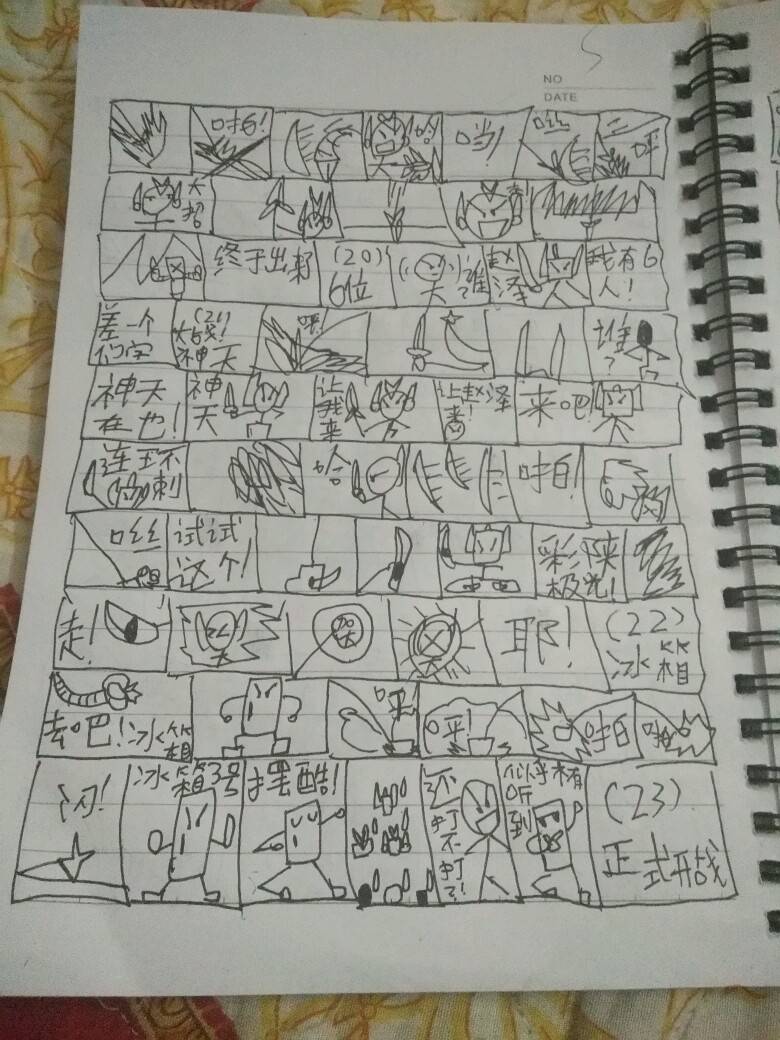 5
NO
DATE
哈
叮当
呯
大招
终于出来
(20)
6位
谁
赵泽
我有6人!
差一个
的字
(21)
大战!
神天
呯!
谁?
神天在也!
神天
让我来
让赵泽
来!
来吧!
连环刺
哈
咔自!
咝
试试这个!
彩陕极光!
走!
哭
耶!
(22)
冰箱
去吧!冰箱
呯!
呯!
咔自
啪
闪!
冰箱3号
摆酷!
还打不打了?!
似乎有听到
(23)
正式开战